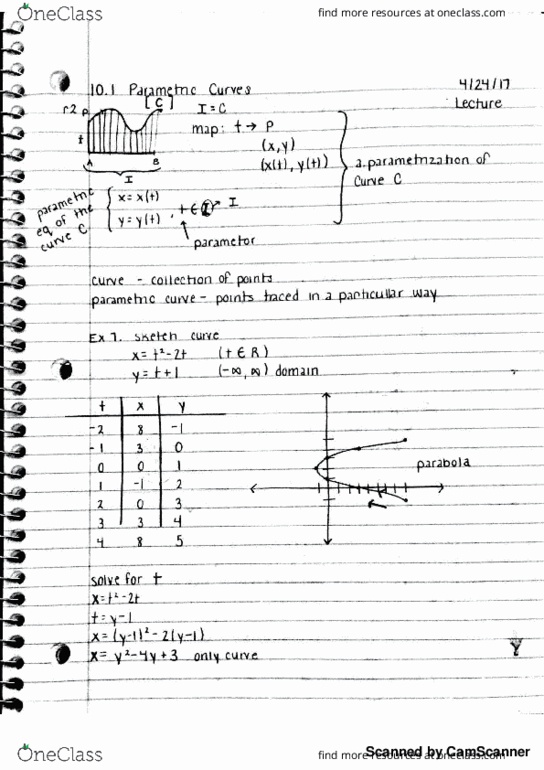 OneClass
find more resources at oneclass.com
10.1 Parametric Curves
4/24/17
[C]
I = C
Lecture
r2 P
map: t → P
t
(x,y)
(x(t), y(t))
a. parametrization of
curve C
A B
I
parametric
eq of the
curve C
x = x(t)
y = y(t), t ∈ I
I
parametor
curve - collection of points
parametric curve - points traced in a particular way
Ex 1. sketch curve
x = t²-2t (t ∈ R)
y = t+1 (-∞, ∞) domain
t x y
-2 8 -1
-1 3 0
0 0 1
1 -1 2
2 0 3
3 3 4
4 8 5
parabola
solve for t
x=t²-2t
t=y-1
x=(y-1)²-2(y-1)
x= y²-4y+3 only curve
OneClass
find more resources at oneclass.com
Scanned by CamScanner